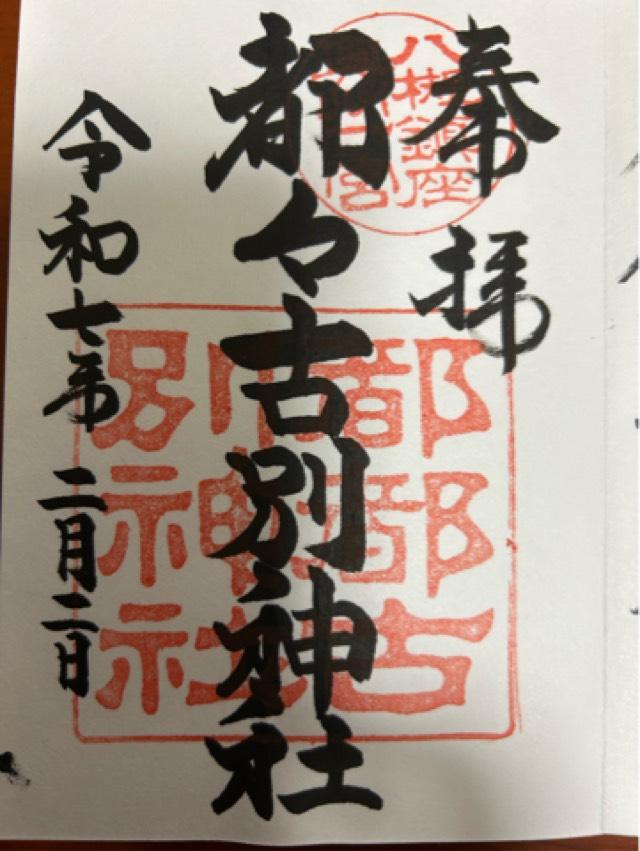 奉拝
八槻鎮座
都々古別神社
都都古
別神社
令和七年二月二日